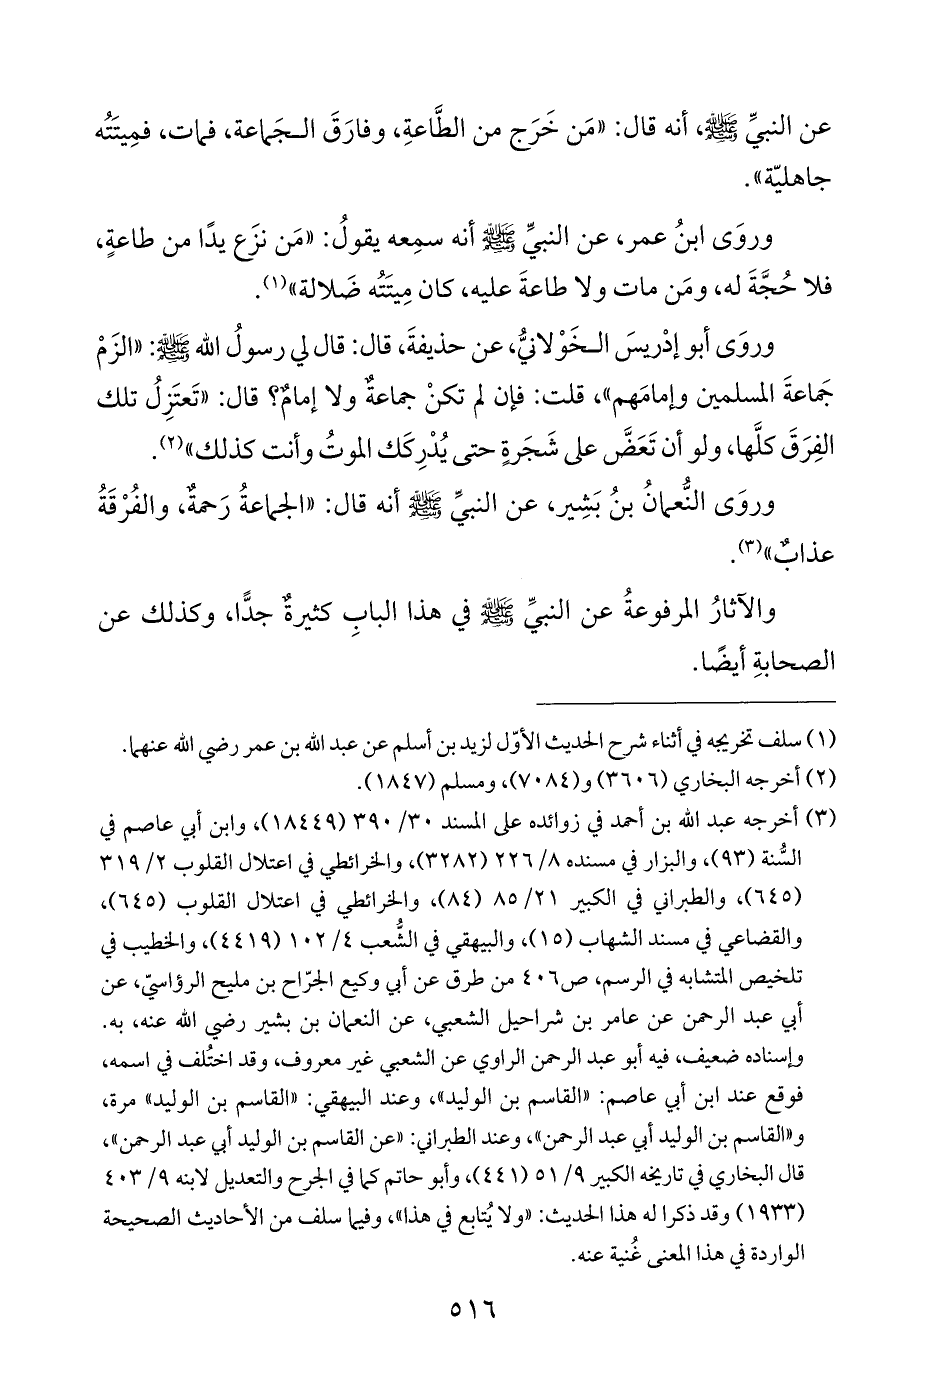 عن النبيِّ ﷺ، أنه قال: «مَن خَرَج من الطَّاعةِ، وفارَقَ الـجَماعة، فمات، فمِيتَتُه
جاهليّة».
وروَى ابنُ عمر، عن النبيِّ ﷺ أنه سمِعه يقولُ: «مَن نزَع يدًا من طاعةٍ،
فلا حُجَّةَ له، ومَن مات ولا طاعةَ عليه، كان مِيتَتُه ضَلالة»(١).
وروَى أبو إدْريسَ الـخَوْلانيُّ، عن حذيفةَ، قال: قال لي رسولُ الله ﷺ: «الزَمْ
جَماعةَ المسلمين وإمامَهم»، قلت: فإن لم تكنْ جماعةٌ ولا إمامٌ؟ قال: «تَعتَزِلُ تلك
الفِرَقَ كلَّها، ولو أن تَعَضَّ على شَجَرةٍ حتى يُدْرِكَك الموتُ وأنت كذلك»(٢).
وروَى النُّعمانُ بنُ بَشِير، عن النبيِّ ﷺ أنه قال: «الجماعةُ رَحمةٌ، والفُرْقَةُ
عذابٌ»(٣).
والآثارُ المرفوعةُ عن النبيِّ ﷺ في هذا البابِ كثيرةٌ جدًّا، وكذلك عن
الصحابةِ أيضًا.
(١) سلف تخريجه في أثناء شرح الحديث الأوّل لزيد بن أسلم عن عبد الله بن عمر رضي الله عنهما.
(٢) أخرجه البخاري (٣٦٠٦) و(٧٠٨٤)، ومسلم (١٨٤٧).
(٣) أخرجه عبد الله بن أحمد في زوائده على المسند ٣٠/ ٣٩٠ (١٨٤٤٩)، وابن أبي عاصم في
السُّنة (٩٣)، والبزار في مسنده ٨/ ٢٢٦ (٣٢٨٢)، والخرائطي في اعتلال القلوب ٢/ ٣١٩
(٦٤٥)، والطبراني في الكبير ٢١/ ٨٥ (٨٤)، والخرائطي في اعتلال القلوب (٦٤٥)،
والقضاعي في مسند الشهاب (١٥)، والبيهقي في الشُّعب ٤/ ١٠٢ (٤٤١٩)، والخطيب في
تلخيص المتشابه في الرسم، ص٤٠٦ من طرق عن أبي وكيع الجرّاح بن مليح الرؤاسيّ، عن
أبي عبد الرحمن عن عامر بن شراحيل الشعبي، عن النعمان بن بشير رضي الله عنه، به.
وإسناده ضعيف، فيه أبو عبد الرحمن الراوي عن الشعبي غير معروف، وقد اختُلف في اسمه،
فوقع عند ابن أبي عاصم: «القاسم بن الوليد»، وعند البيهقي: «القاسم بن الوليد» مرة،
و«القاسم بن الوليد أبي عبد الرحمن»، وعند الطبراني: «عن القاسم بن الوليد أبي عبد الرحمن»،
قال البخاري في تاريخه الكبير ٩/ ٥١ (٤٤١)، وأبو حاتم كما في الجرح والتعديل لابنه ٩/ ٤٠٣
(١٩٣٣) وقد ذكرا له هذا الحديث: «ولا يُتابع في هذا»، وفيما سلف من الأحاديث الصحيحة
الواردة في هذا المعنى غُنية عنه.
٥١٦